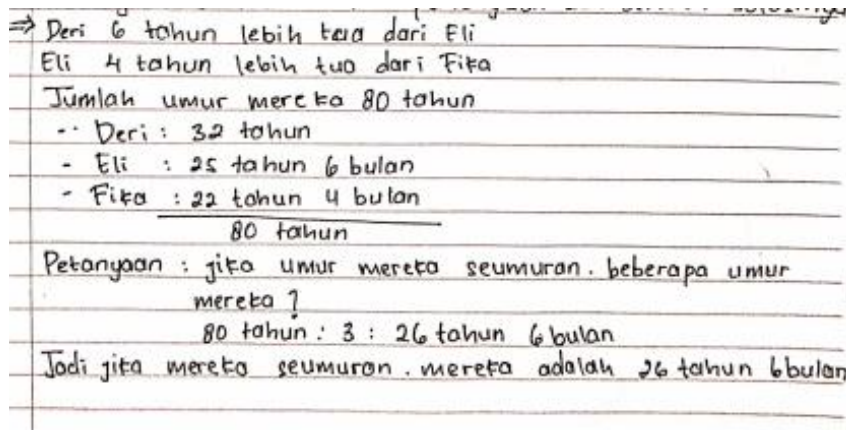 ⇒ Deri 6 tahun lebih tua dari Eli
Eli 4 tahun lebih tua dari Fika
Jumlah umur mereka 80 tahun
-. Deri : 32 tahun
- Eli : 25 tahun 6 bulan
- Fika : 22 tahun 4 bulan
80 tahun
Petanyaan : jika umur mereka seumuran. beberapa umur
mereka ?
80 tahun : 3 : 26 tahun 6 bulan
Jadi jika mereka seumuran. mereka adalah 26 tahun 6 bulan